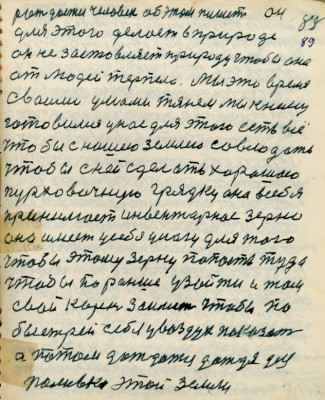 рождали человек об этом пишет он 88
для этого делает в природе 89
он не заставляет природу чтобы она
от людей терпела. Мы это время
своими умами тянем мы к нему
готовимся у нас для этого есть всё
чтобы с нашею землею совладать
чтобы с ней сделать хорошею
пуховичную грядку она в себя
принимает инвентарное зерно
она имеет у себя влагу для того
чтобы этому зерну попасть туда
чтобы пораньше взойти и там
свой корень занять чтобы по
быстрей себя в воздух показать
а потом дождать дождя для
поливки этой земли